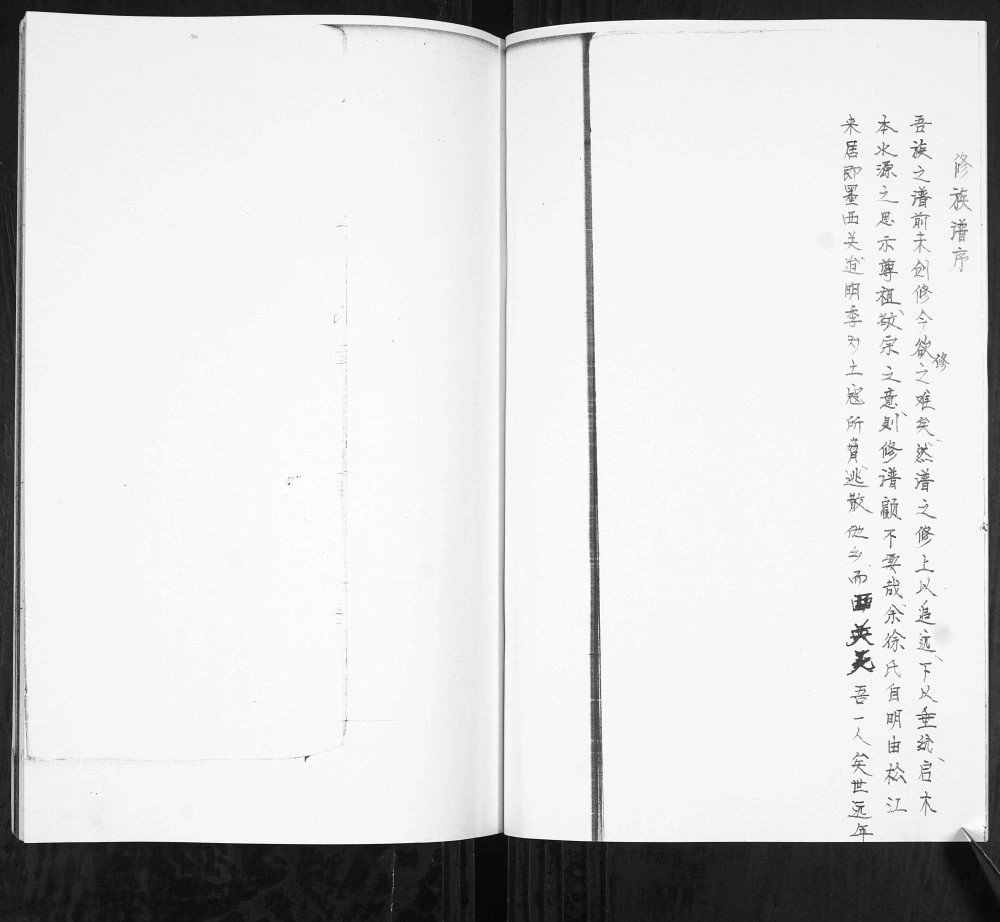 修族谱序
吾族之谱前未创修今欲修之难矣然谱之修上以追远下以垂统启木
本水源之思示尊祖敬宗之意则修谱顾不要哉余徐氏自明由松江
来居即墨西关迨明季为土寇所胥逃散他乡而西关吾一人矣世远年